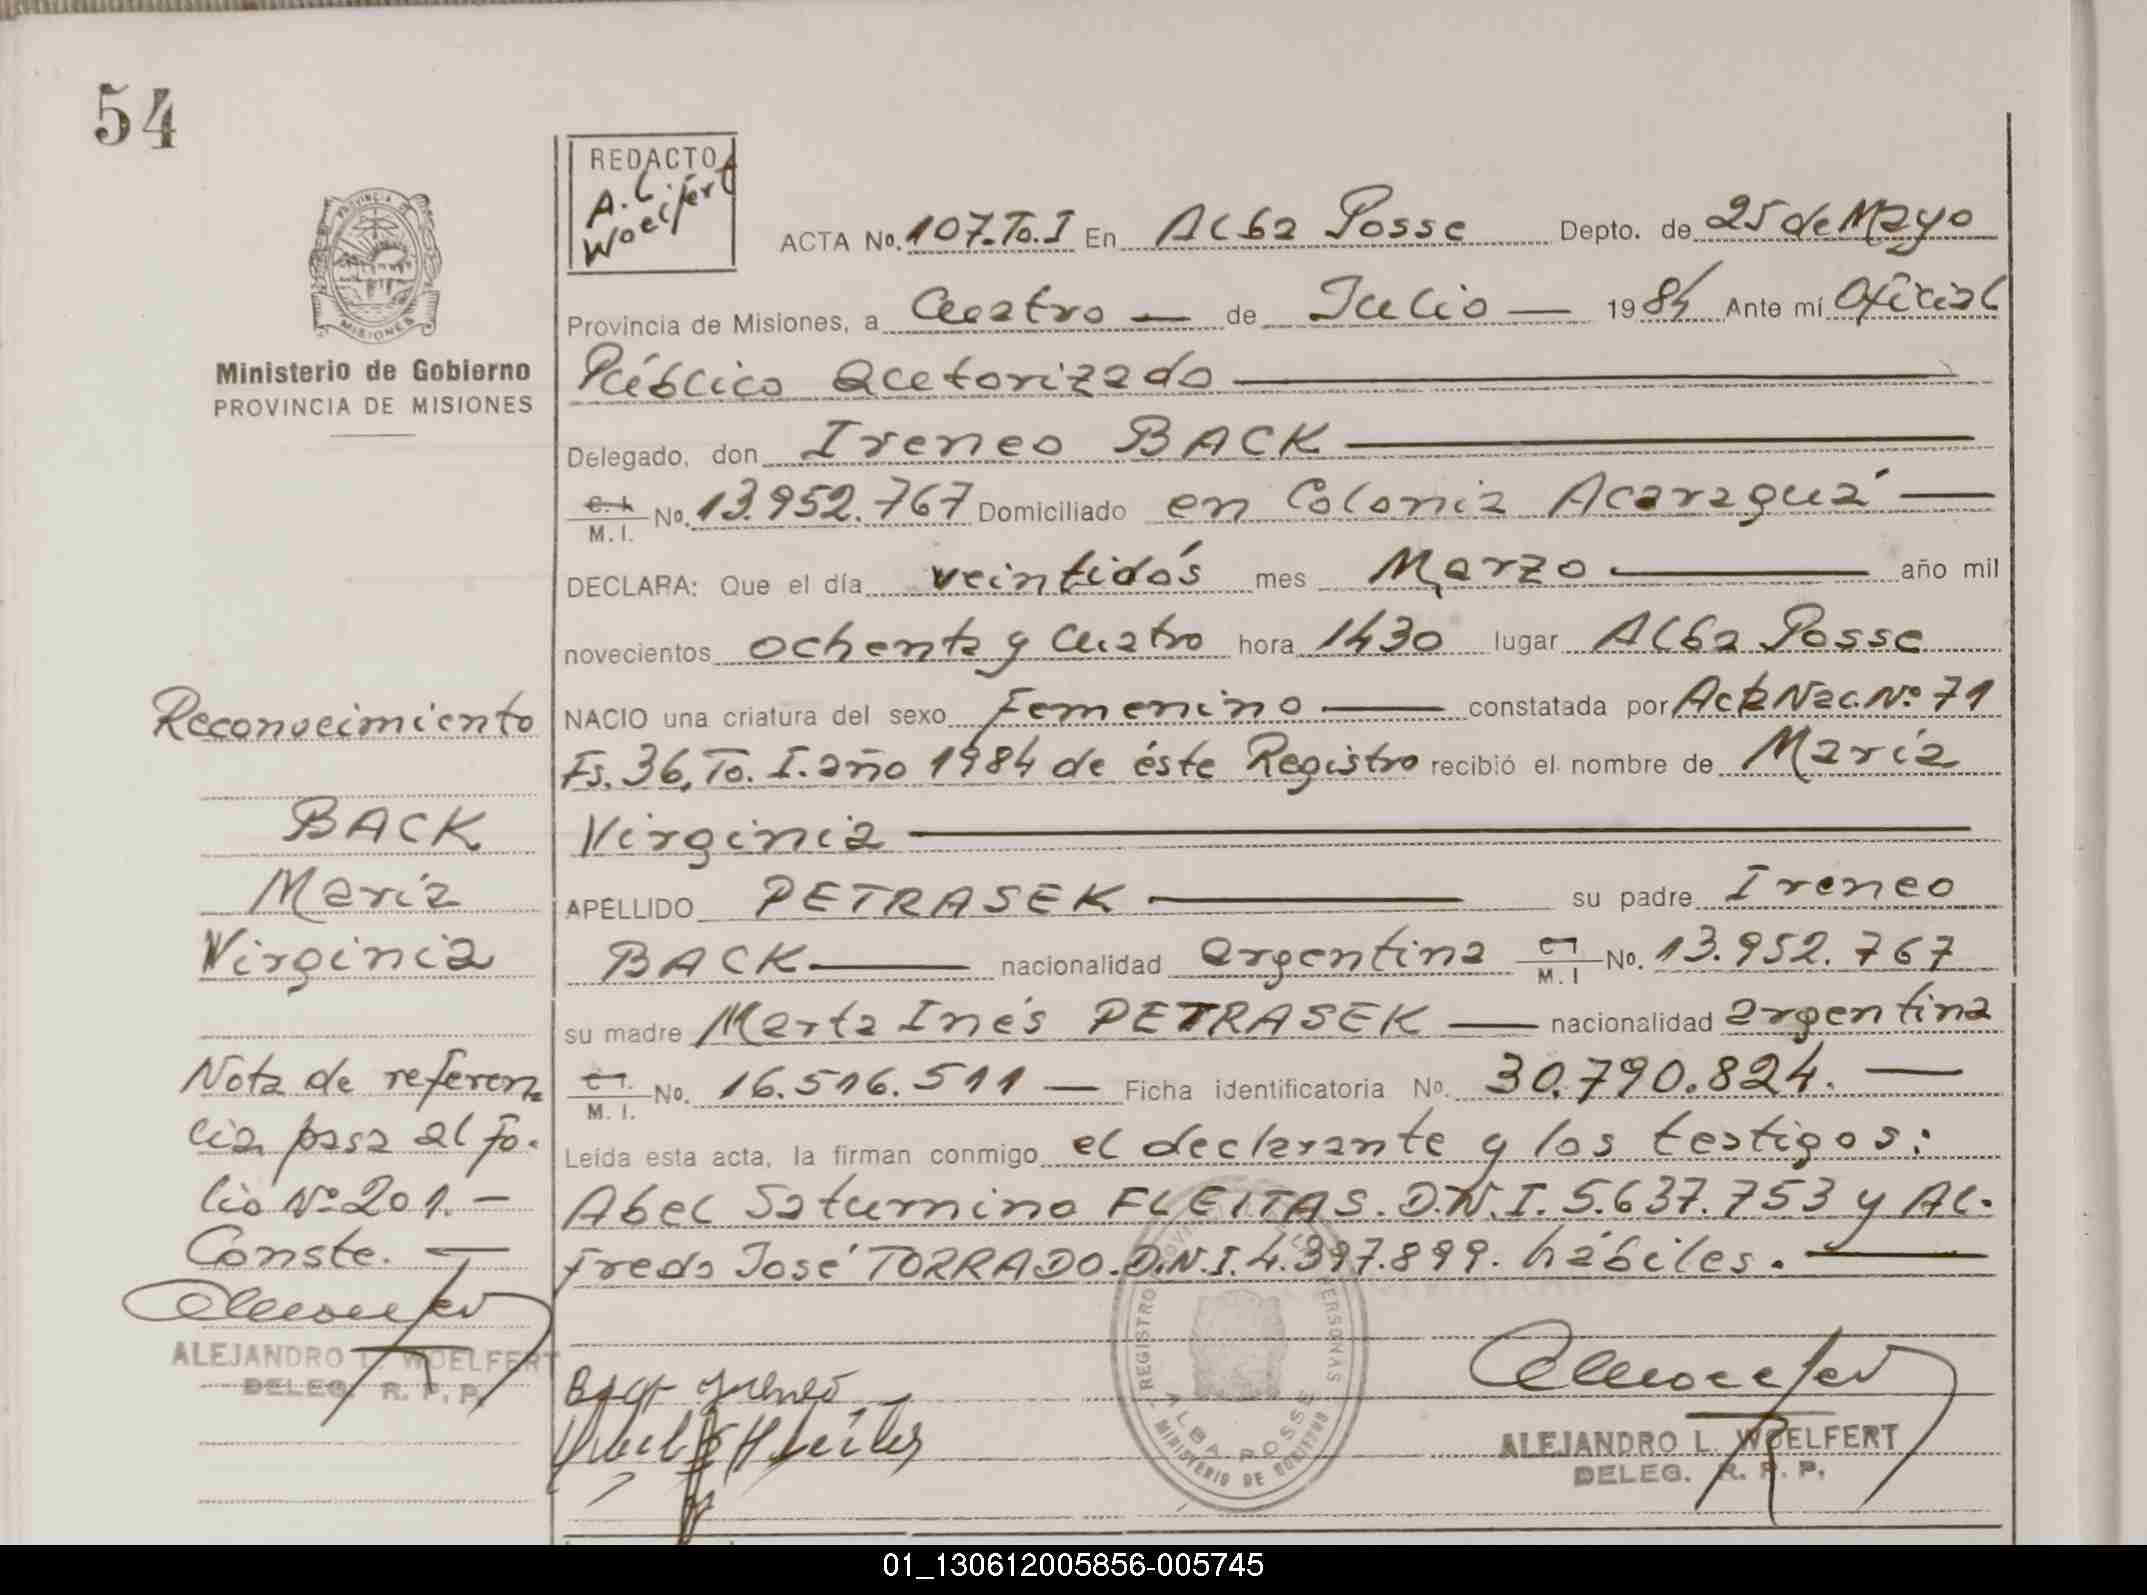 54
REDACTO
A. L.
Woelfert
PROVINCIA DE
MISIONES
Ministerio de Gobierno
PROVINCIA DE MISIONES
ACTA No. 107. To. I En Alba Posse Depto. de 25 de Mayo
Provincia de Misiones, a Cuatro — de Julio — 1984 Ante mí Oficial
Público autorizado
Delegado, don Ireneo BACK
M. I. No. 13.952.767 Domiciliado en Colonia Acaraguá
DECLARA: Que el día veintidós mes Marzo año mil
novecientos ochenta y cuatro hora 1430 lugar Alba Posse
NACIO una criatura del sexo Femenino constatada por Acta Nac. Nº 71
Fs. 36, To. I. año 1984 de éste Registro recibió el nombre de María
Virginia
APELLIDO PETRASEK su padre Ireneo
BACK nacionalidad argentina M. I No. 13.952.767
su madre Marta Inés PETRASEK nacionalidad argentina
M. I. No. 16.516.511 — Ficha identificatoria No. 30.790.824.
Leída esta acta, la firman conmigo el declarante y los testigos:
Abel Saturnino FLEITAS. D.N.I. 5.637.753 y Al-
fredo José TORRADO. D.N.I. 4.397.899. hábiles.
Reconocimiento
BACK
María
Virginia
Nota de referen
cia pasa al Fo-
lio Nº 201. —
Conste. —
ALEJANDRO L. WOELFERT
DELEG. R. P. P.
Back Ireneo
REGISTRO PROVINCIAL DE LAS PERSONAS
ALBA POSSE
MINISTERIO DE GOBIERNO
ALEJANDRO L. WOELFERT
DELEG. R. P. P.
01_130612005856-005745